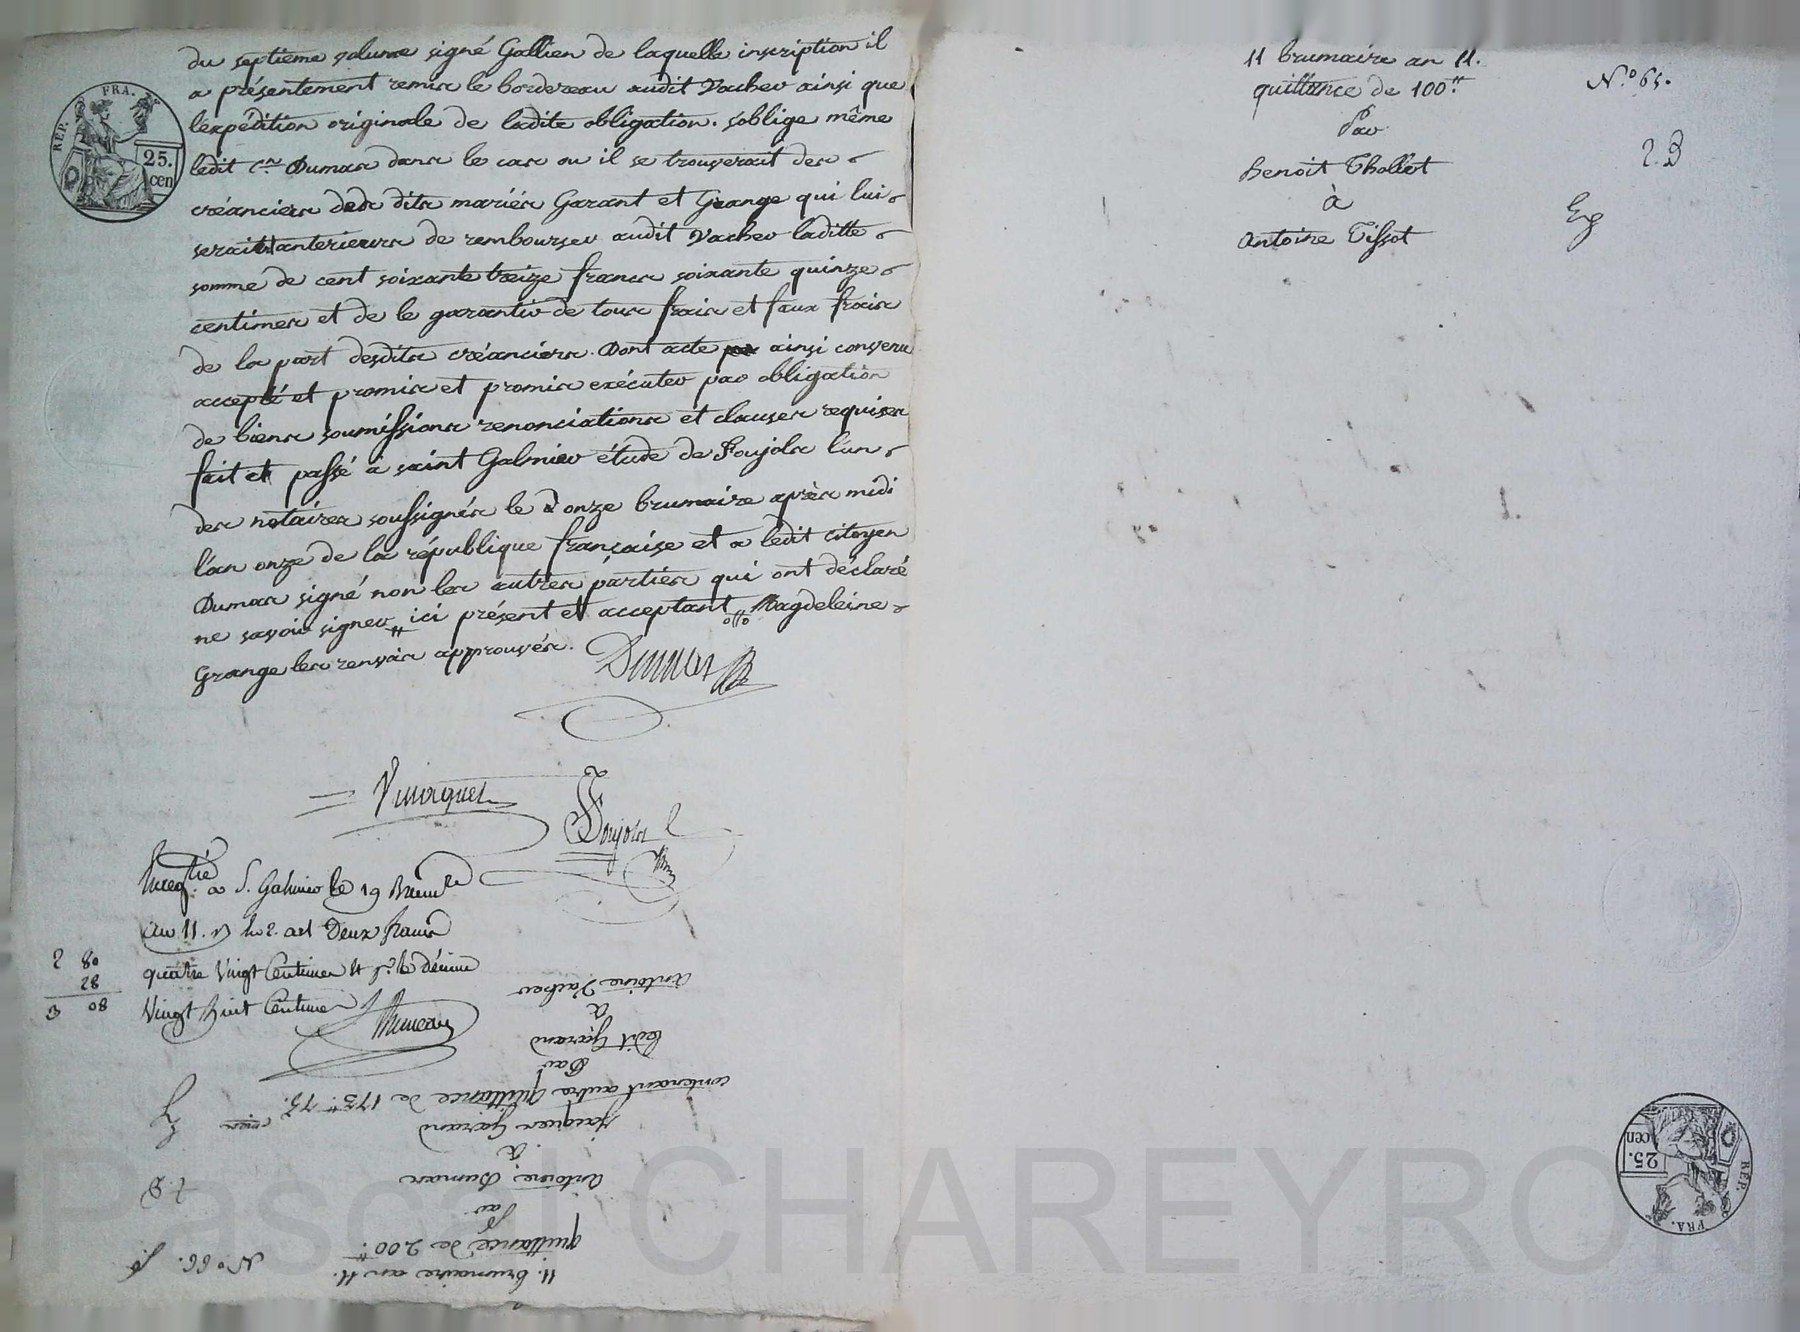 du septieme volume signé Gallien de laquelle inscription il
a présentement remis le bordereau audit Vacher ainsi que
l'expédition originale de ladite obligation. s'oblige même
ledit c.en Dumas dans le cas ou il se trouverait des
créanciers desdits mariés Garant et Grange qui lui
serait anterieurs de rembourser audit Vacher laditte
somme de cent soixante treize francs soixante quinze
centimes et de le garantir de tous frais et faux frais
de la part desdits créanciers. Dont acte ainsi convenu
accepté et promis et promis exécuter par obligation
de biens soumissions renonciations et clauses requises
fait et passé à saint Galmier étude de Foujols l'un
des notaires soussignés le onze brumaire après midi
l'an onze de la république française et a ledit citoyen
Dumas signé non les autres parties qui ont déclaré
ne savoir signer ici présent et acceptant Magdeleine
Grange les renvois approuvés. Dumas
REP. FRA.
25. cen
Foujols
a S. Galmier le 19 Brum.re
an 11. Deux francs
quatre vingt Centimes et p.r le décime
vingt huit Centimes
2 80
28
3 08
11. brumaire an 11. N.o 66.
quittance de 200.tt
par
Antoine Dumas
à
Jacques Garand
contenant autre quittance de 173.tt 75.
Par
ledit Garand
à
Antoine Vacher
11 brumaire an 11. N.o 65.
quittance de 100.tt
Par
Benoit Thollet
à
Antoine Tissot
REP. FRA.
25. cen
Pascal CHAREYRON